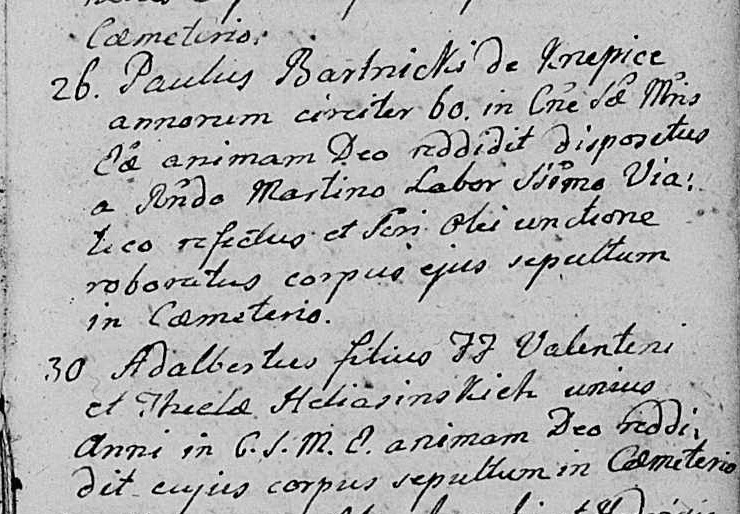 Cæmeterio.
26. Paulus Bartnicki de Knepice
annorum circiter 60. in Cne Sæ Mris
Eæ animam Deo reddidit dispositus
a Rndo Martino Labor SSimo Via:
tico refectus et Scri Olei unctione
roboratus corpus ejus sepultum
in Cæmeterio.
30 Adalbertus filius JJ Valentini
et Theclæ Heliasinskich unius
Anni in C. S. M. E. animam Deo reddi:
dit cujus corpus sepultum in Cæmeterio